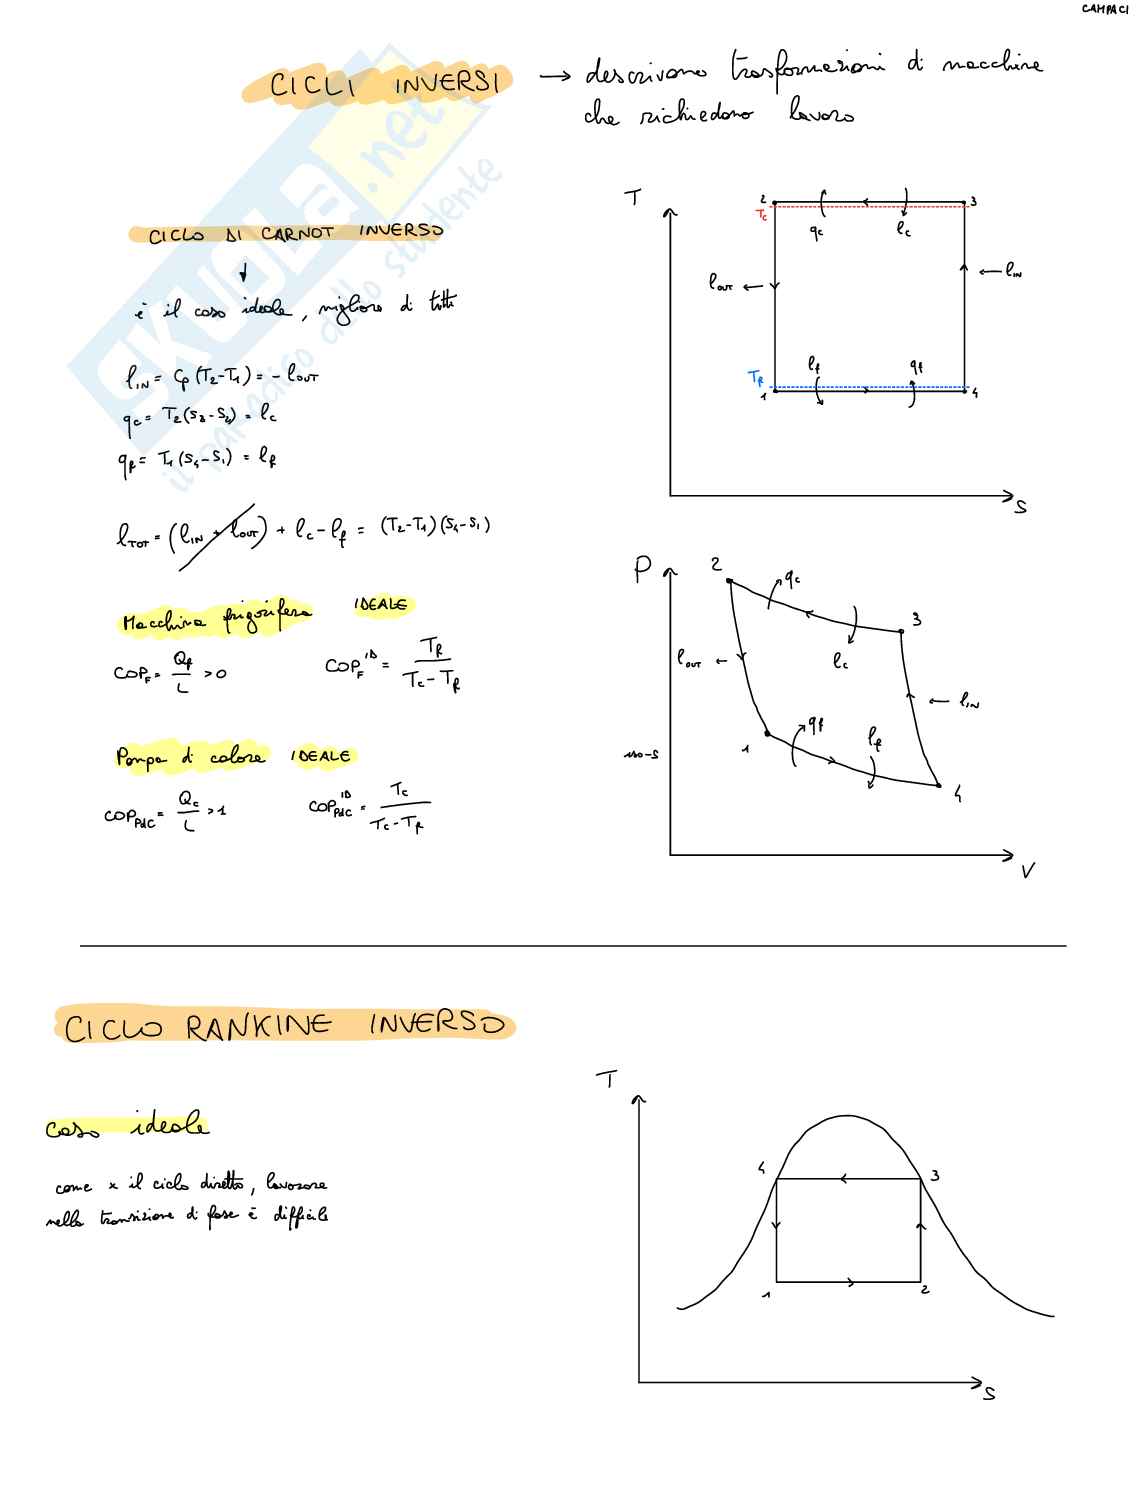 CAMPACI
CICLI INVERSI → descrivono trasformazioni di macchine
che richiedono lavoro
CICLO DI CARNOT INVERSO
↓
è il caso ideale, migliore di tutti
l_IN = Cp (T2-T1) = - l_OUT
qc = T2 (S3 - S2) = lc
qf = T1 (S4 - S1) = lf
l_TOT = (l_IN + l_OUT) + lc - lf = (T2-T1)(S4-S1)
Macchina frigorifera IDEALE
COP_F = Qf / L > 0 COP_F^ID = Tf / (Tc - Tf)
Pompa di calore IDEALE
COP_PdC = Qc / L > 1 COP_PdC^ID = Tc / (Tc - Tf)
T
2 3
Tc
qc lc
l_OUT ← ← l_IN
lf qf
Tf
1 4
S
P
2 qc
3
lc
l_OUT ← ← l_IN
qf lf
1
iso-S
4
V
CICLO RANKINE INVERSO
caso ideale
come x il ciclo diretto, lavorare
nella transizione di fase è difficile
T
4 3
1 2
S
SKUOLA.net
il paradiso dello studente